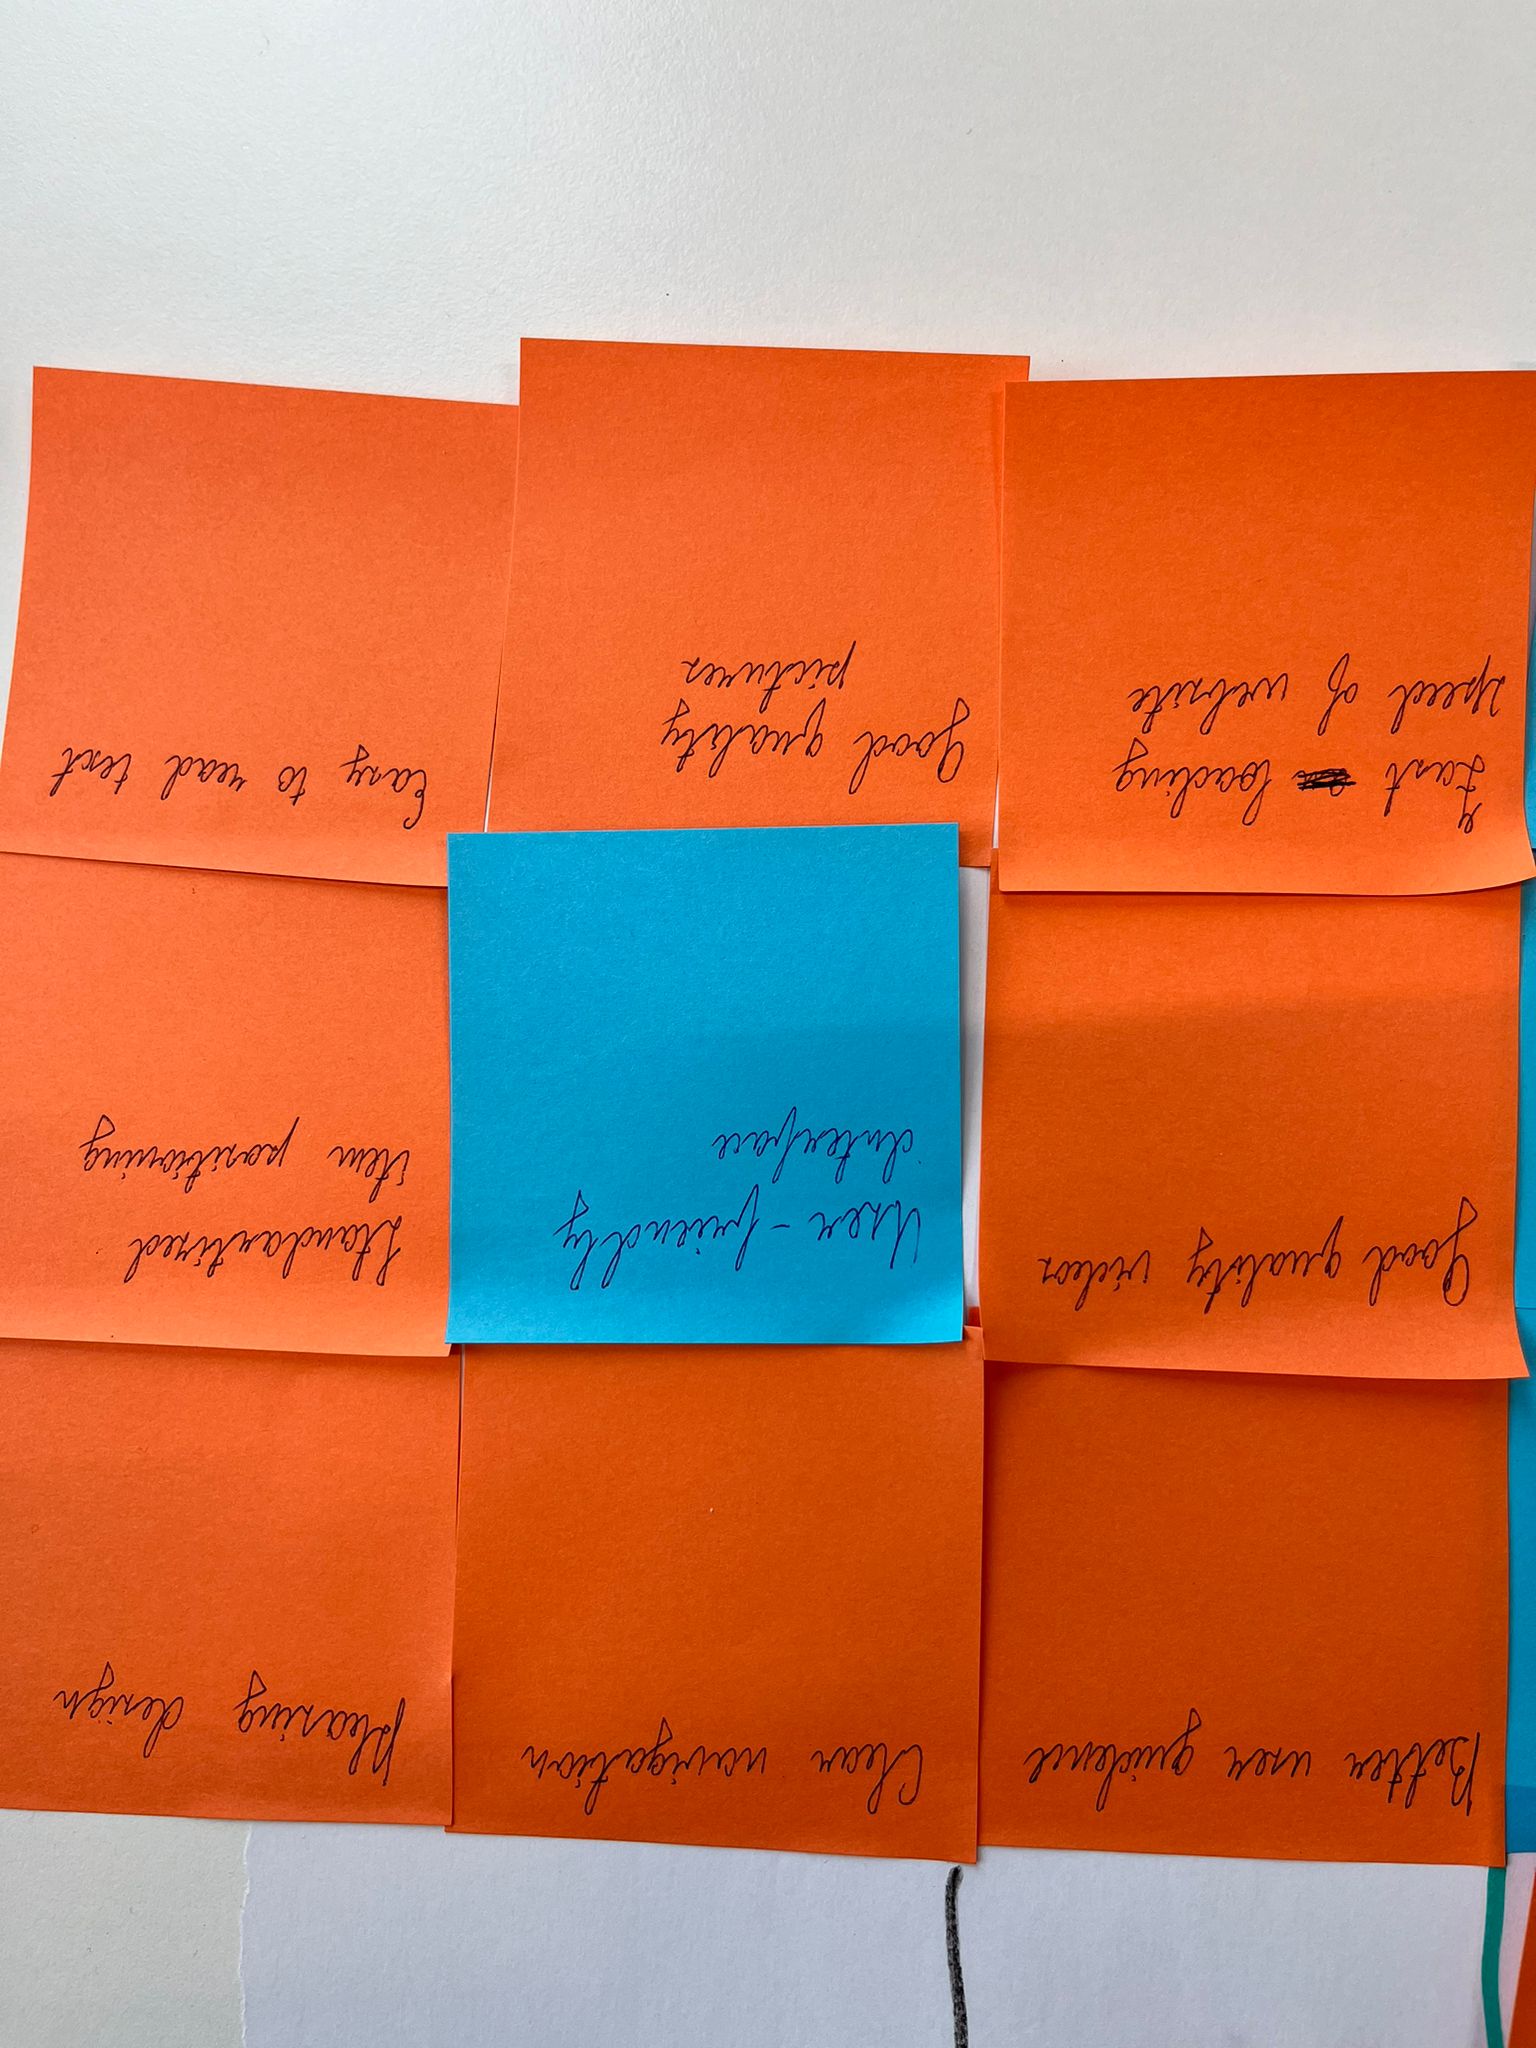 Better user guidence
Clear navigation
Pleasing design
Good quality videos
User-friendly
Interface
Standartized
item positioning
Fast loading
speed of website
Good quality
pictures
Easy to read text